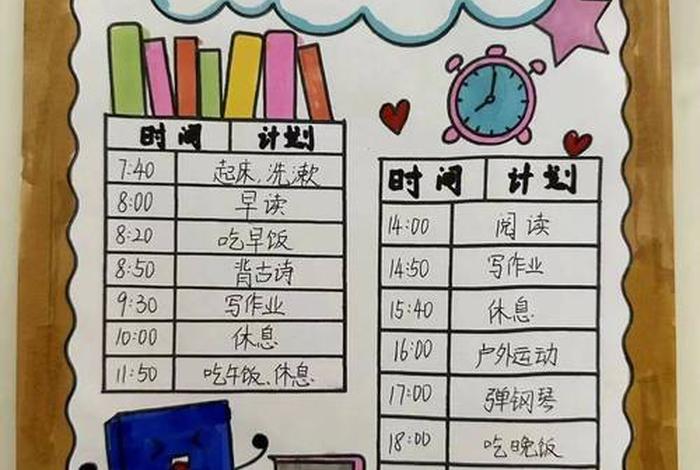 时间 计划
7:40 起床、洗漱
8:00 早读
8:20 吃早饭
8:50 背古诗
9:30 写作业
10:00 休息
11:50 吃午饭、休息
时间 计划
14:00 阅读
14:50 写作业
15:40 休息
16:00 户外运动
17:00 弹钢琴
18:00 吃晚饭